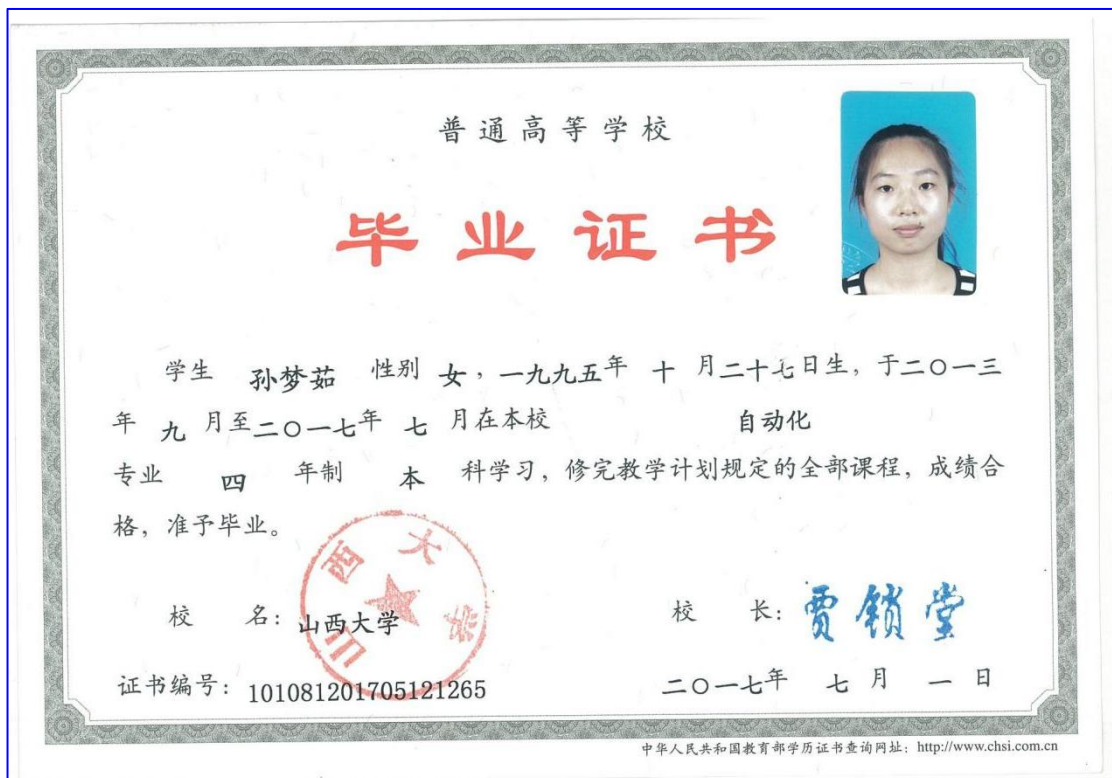 普通高等学校
毕业证书
学生 孙梦茹 性别 女，一九九五年 十 月二十七日生，于二〇一三
年 九 月至二〇一七年 七 月在本校 自动化
专业 四 年制 本 科学习，修完教学计划规定的全部课程，成绩合
格，准予毕业。
山西大学
校 名：山西大学 校 长：贾锁堂
证书编号：101081201705121265 二〇一七年 七 月 一 日
中华人民共和国教育部学历证书查询网址：http://www.chsi.com.cn